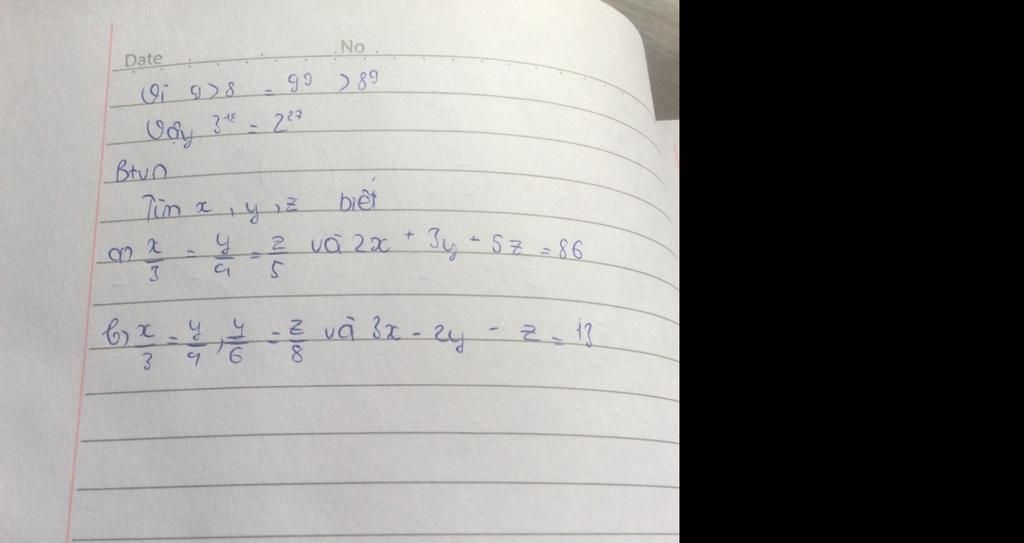 Date No
Vì 9>8 = 9⁹ >8⁹
Vậy 3¹⁸ = 2²⁷
Btvn
Tìm x, y, z biết
a) x/3 = y/4 = z/5 và 2x + 3y + 5z = 86
b) x/3 = y/4, y/6 = z/8 và 3x - 2y - z = 13